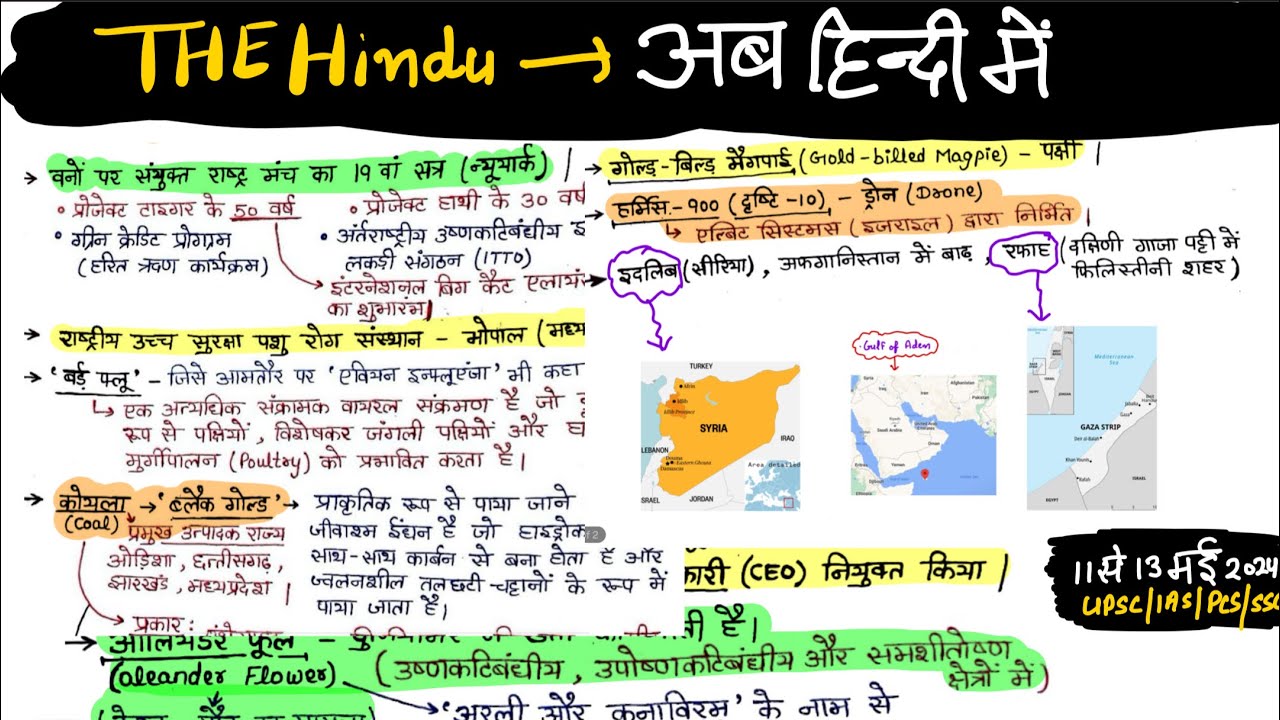 THE Hindu → अब हिन्दी में
→ वनों पर संयुक्त राष्ट्र मंच का 19 वां सत्र (न्यूयार्क) |
• प्रोजेक्ट टाइगर के 50 वर्ष
• प्रोजेक्ट हाथी के 30 वर्ष
• ग्रीन क्रेडिट प्रोग्राम
(हरित ऋण कार्यक्रम)
• अंर्तराष्ट्रीय उष्णकटिबंधीय
लकड़ी संगठन (ITTO)
→ इंटरनेशनल बिग कैट एलायंस
का शुभारंभ|
→ राष्ट्रीय उच्च सुरक्षा पशु रोग संस्थान - भोपाल (मध्य
→ 'बर्ड फ्लू' - जिसे आमतौर पर 'एवियन इन्फ्लूएंजा' भी कहा
↳ एक अत्यधिक संक्रामक वायरल संक्रमण है जो
रूप से पक्षियों, विशेषकर जंगली पक्षियों और
मुर्गीपालन (Poultry) को प्रभावित करता है।
→ कोयला → 'ब्लैक गोल्ड' →
(Coal)
प्रमुख उत्पादक राज्य
ओड़िशा, छत्तीसगढ़,
झारखंड, मध्यप्रदेश |
→ प्रकार:
प्राकृतिक रूप से पाया जाने
जीवाश्म ईंधन है जो हाइड्रोक
साथ-साथ कार्बन से बना होता है और
ज्वलनशील तलछटी चट्टानों के रूप में
पाया जाता है।
of 2
→ गोल्ड-बिल्ड मैगपाई (Gold-billed Magpie) - पक्षी |
→ हर्मिस-900 (दृष्टि-10) - ड्रोन (Drone)
↳ एल्बिट सिस्टमस (इजराइल) द्वारा निर्मित |
→ इदलिब (सीरिया), अफगानिस्तान में बाढ़, रफाह (दक्षिणी गाजा पट्टी में
फिलिस्तीनी शहर)
TURKEY
SYRIA
IRAQ
LEBANON
Damascus
Eastern Ghouta
Area detailed
ISRAEL
JORDAN
Gulf of Aden
Syria
Iraq
Iran
Afghanistan
Pakistan
Saudi Arabia
Oman
Yemen
Eritrea
Ethiopia
Mediterranean
Sea
Jabalia
Gaza
GAZA STRIP
Deir al-Balah
Khan Younis
Rafah
EGYPT
ISRAEL
कारी (CEO) नियुक्त किया |
11 से 13 मई 2024
UPSC/IAS/PCS/SSC
→ ओलियंडर फूल -
ती है।
(Oleander Flower)
(उष्णकटिबंधीय, उपोष्णकटिबंधीय और समशीतोष्ण
क्षेत्रों में)
→ 'अरली और कनाविरम' के नाम से